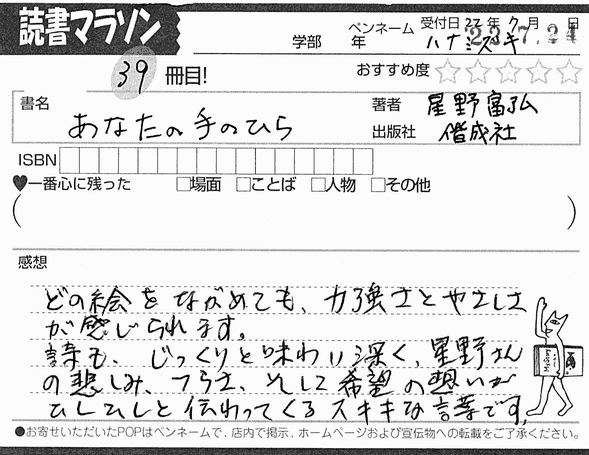 読書マラソン
学部 年 ペンネーム ハナミズキ
受付日 22年 7月 日
23.7.24
39 冊目!
おすすめ度 ☆☆☆☆☆
書名 あなたの手のひら
著者 星野富弘
出版社 偕成社
ISBN
♥一番心に残った □場面 □ことば □人物 □その他
( )
感想
どの絵をながめても、力強さとやさしさ
が感じられます。
詩も、じっくりと味わい深く、星野さん
の悲しみ、つらさ、そして希望の想いが
ひしひしと伝わってくるステキな言葉です。
●お寄せいただいたPOPはペンネームで、店内で掲示、ホームページおよび宣伝物への転載をご了承ください。